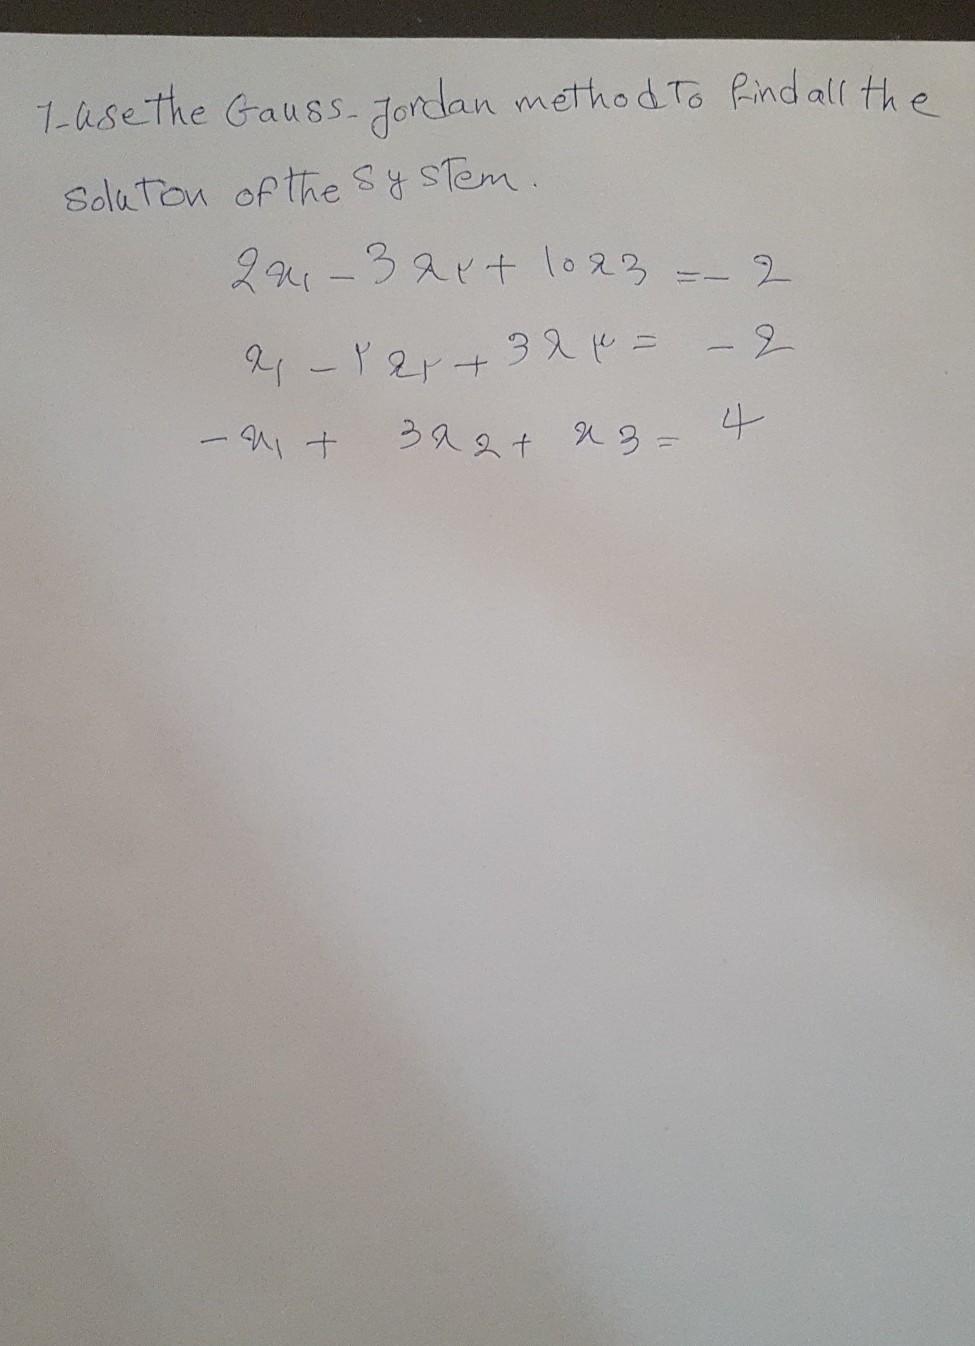 1-use the Gauss-Jordan method To find all the
soluton of the system.
2x1 - 3x۲ + 10x3 = -2
x1 - ۲x۲ + 3x۳ = -2
-x1 + 3x2 + x3 = 4